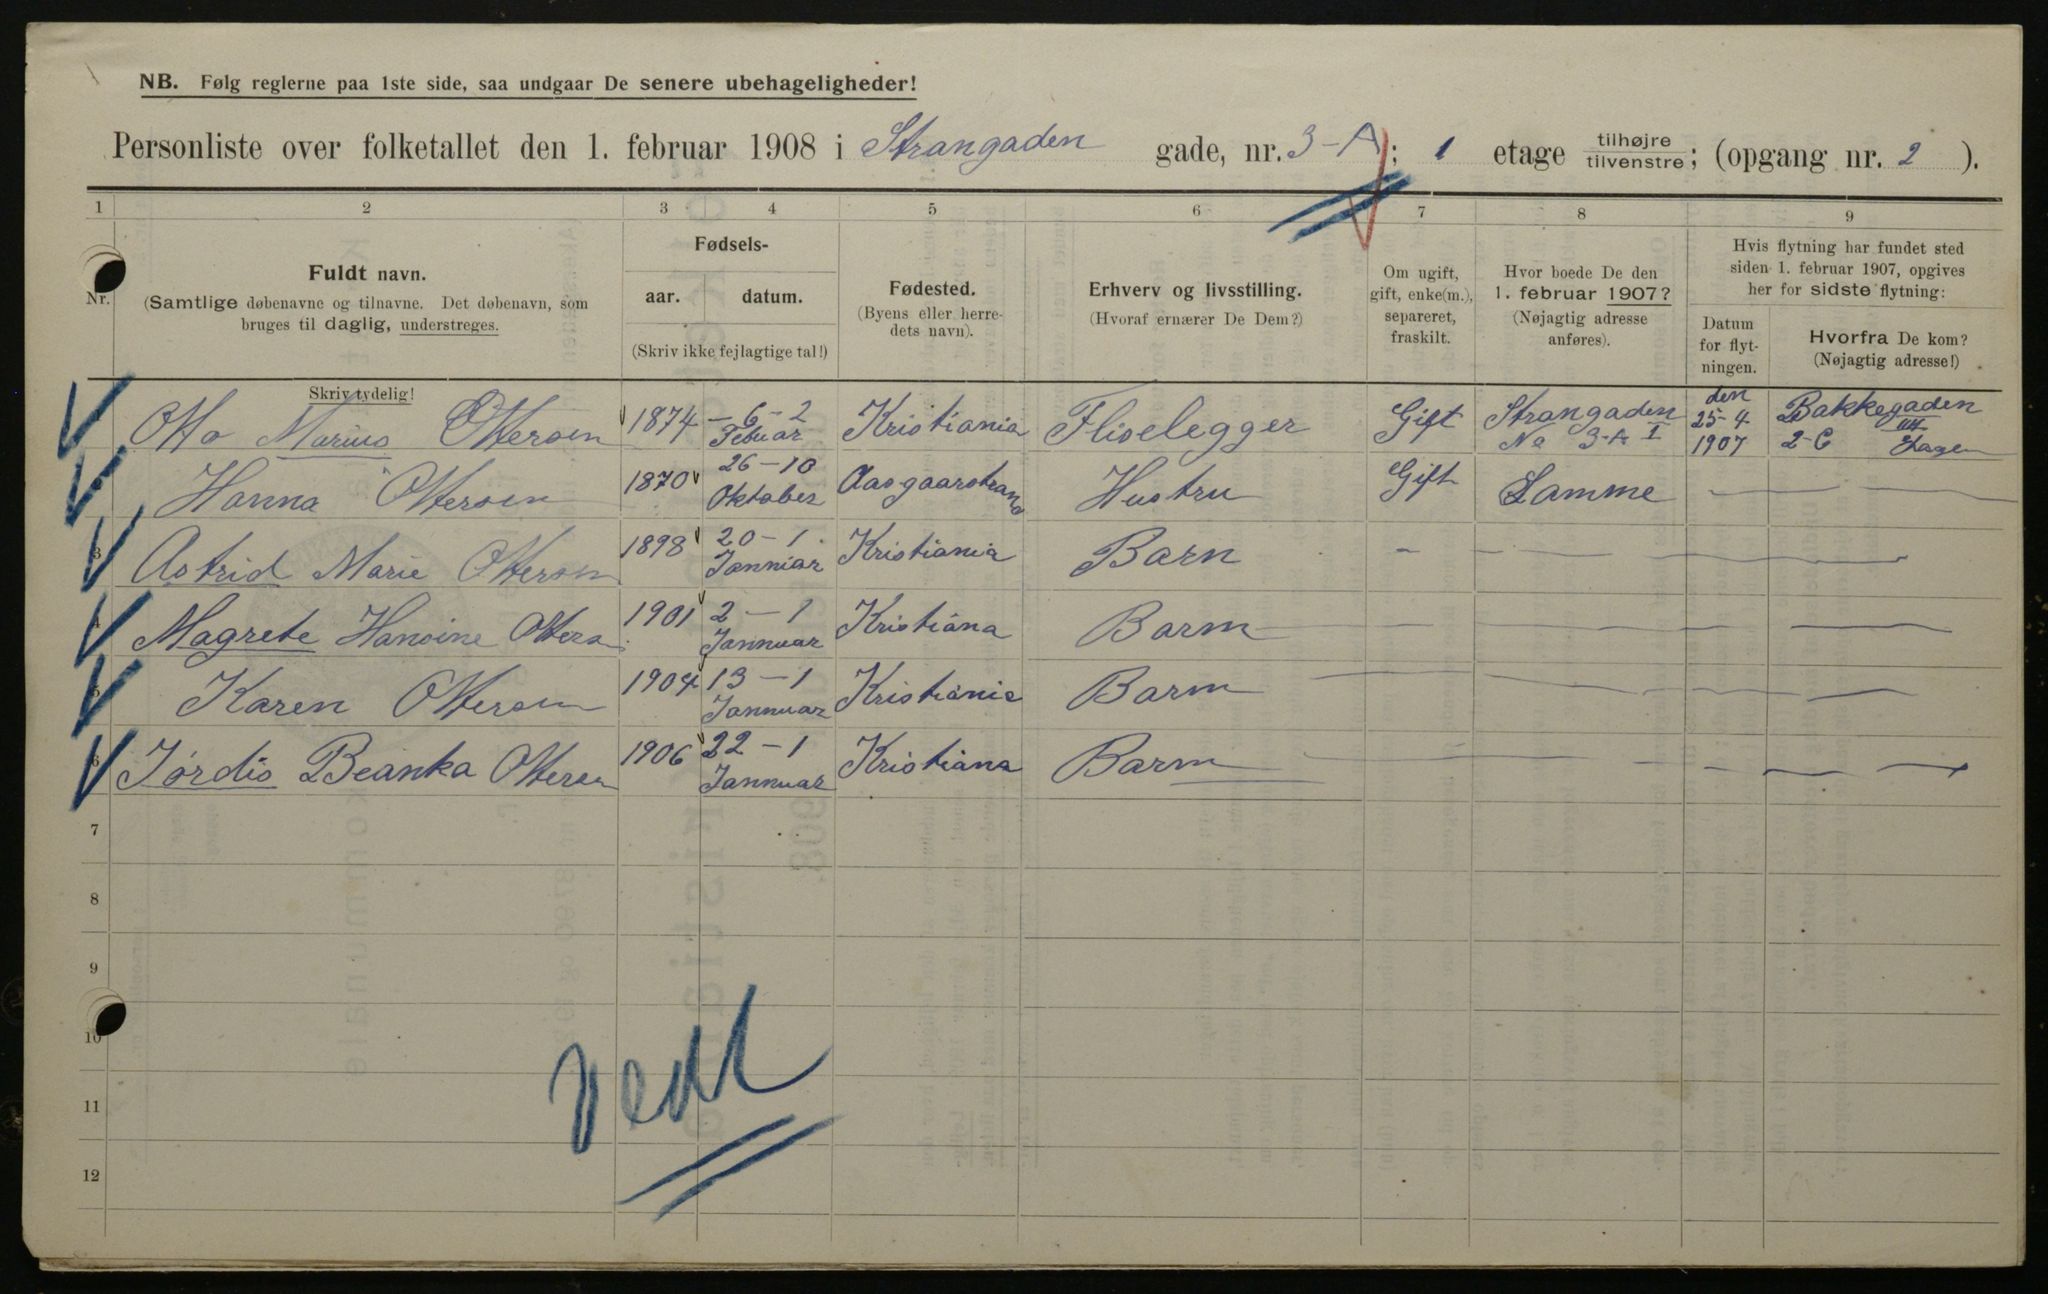 NB. Følg reglerne paa 1ste side, saa undgaar De senere ubehageligheder!
Personliste over folketallet den 1. februar 1908 i Strangaden gade, nr. 3-A; 1 etage tilhøjre tilvenstre; (opgang nr. 2 ).
1 2 3 4 5 6 7 8 9
Nr.
Fuldt navn.
(Samtlige døbenavne og tilnavne. Det døbenavn, som
bruges til daglig, understreges.
Skriv tydelig!
Fødsels-
aar. datum.
(Skriv ikke fejlagtige tal!)
Fødested.
(Byens eller herre-
dets navn).
Erhverv og livsstilling.
(Hvoraf ernærer De Dem?)
Om ugift,
gift, enke(m.),
separeret,
fraskilt.
Hvor boede De den
1. februar 1907?
(Nøjagtig adresse
anføres).
Hvis flytning har fundet sted
siden 1. februar 1907, opgives
her for sidste flytning:
Datum
for flyt-
ningen.
Hvorfra De kom?
(Nøjagtig adresse!)
Otto Marius Ottersen 1874 6-2 Februar Kristiania Fliselegger Gift Strangaden No 3-A I den 25-4 1907 Bakkegaden 2-C
Hanna Ottersen 1870 26-10 Oktober Aasgaarstrand Hustru Gift Samme
3 Astrid Marie Ottersen 1898 20-1 Janniar Kristiania Barn
4 Magrete Hansine Otters 1901 2-1 Jannuar Kristiana Barm
5 Karen Ottersen 1904 13-1 Jannuar Kristiania Barm
6 Jørdis Beanka Ottersen 1906 22-1 Jannuar Kristiana Barm
7
8
9
10
11
12